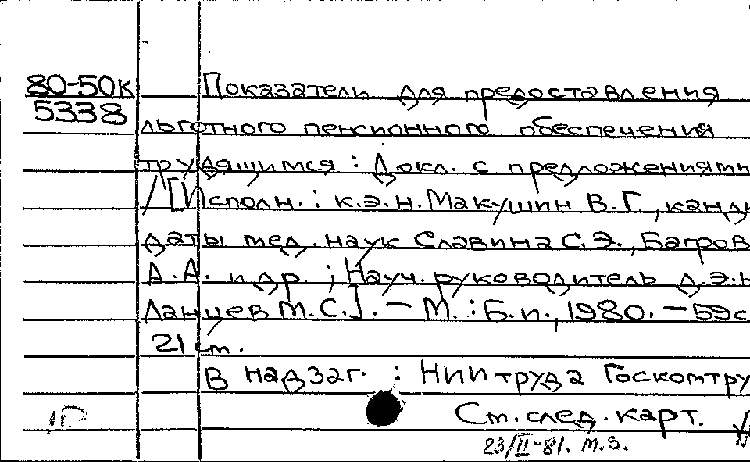 80-50к Показатели для предоставления
5338 льготного пенсионного обеспечения
трудящимся : Докл. с предложениями
/[Исполн.: к.э.н. Макушин В.Г., канди
даты мед. наук Славина С.Э., Багров
А.А. и др. ; Науч. руководитель д.э.н
Ланцев М.С.]. – М. : Б.и., 1980. – 59 с
21 см.
В надзаг. : НИИ труда Госкомтру
См. след. карт.
23/II-81. М.З.